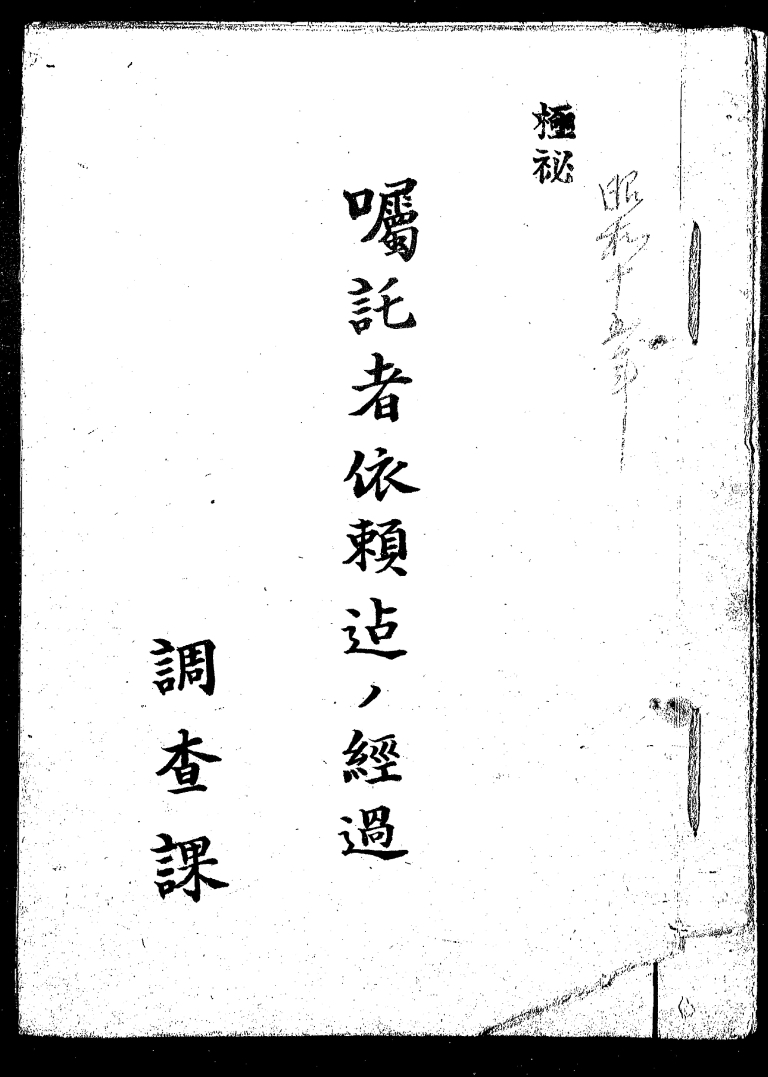 昭和十五年
極祕
囑託者依賴迠ノ經過
調查課